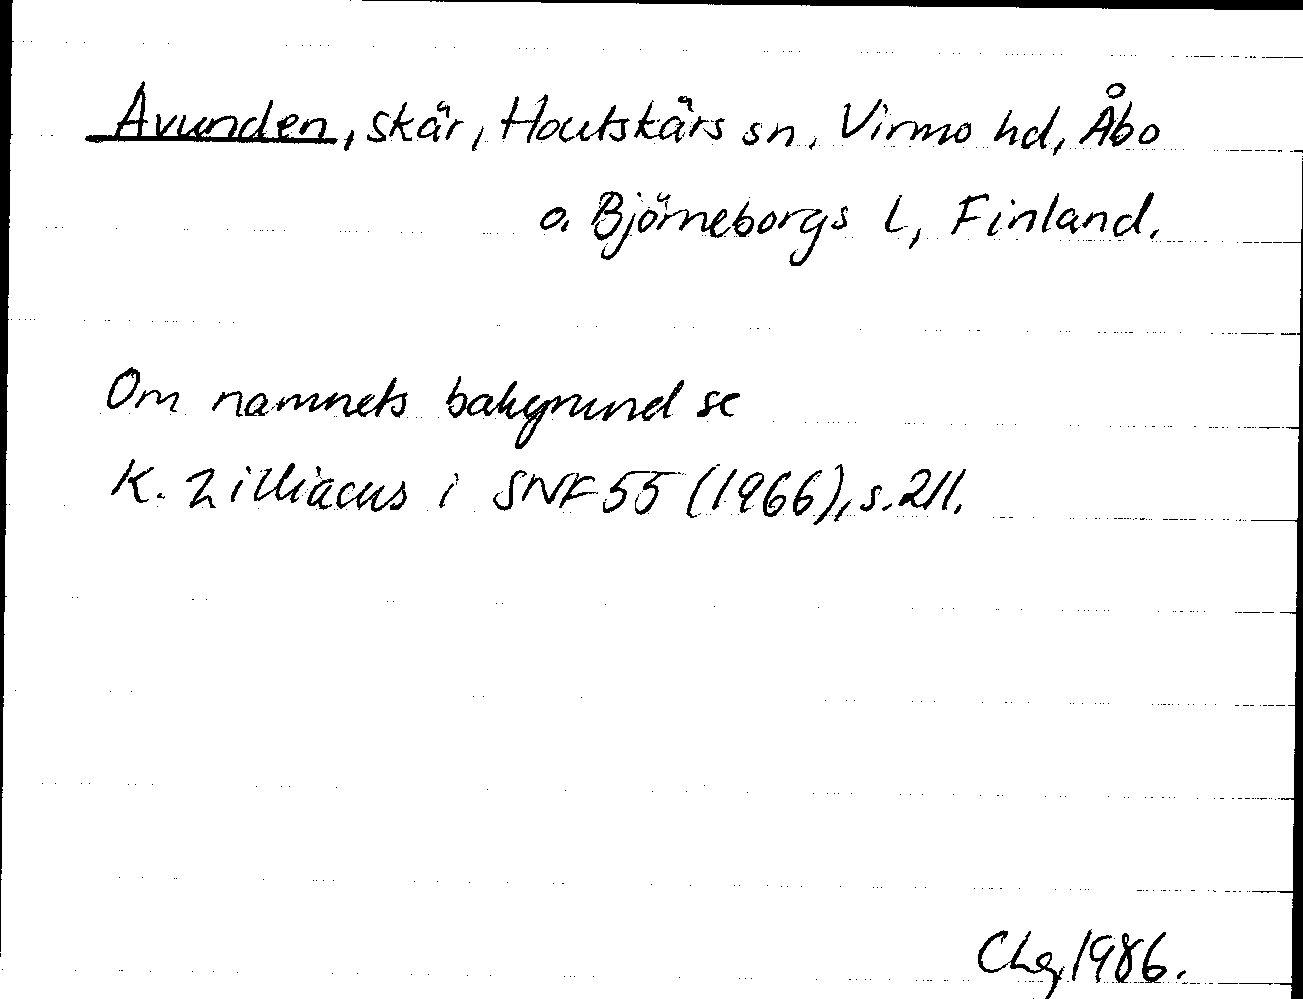 Avunden, skär, Houtskärs sn, Virmo hd, Åbo
o. Björneborgs L, Finland.
Om namnets bakgrund se
K. Zilliacus i SNF 55 (1966), s. 211.
Chg, 1986.